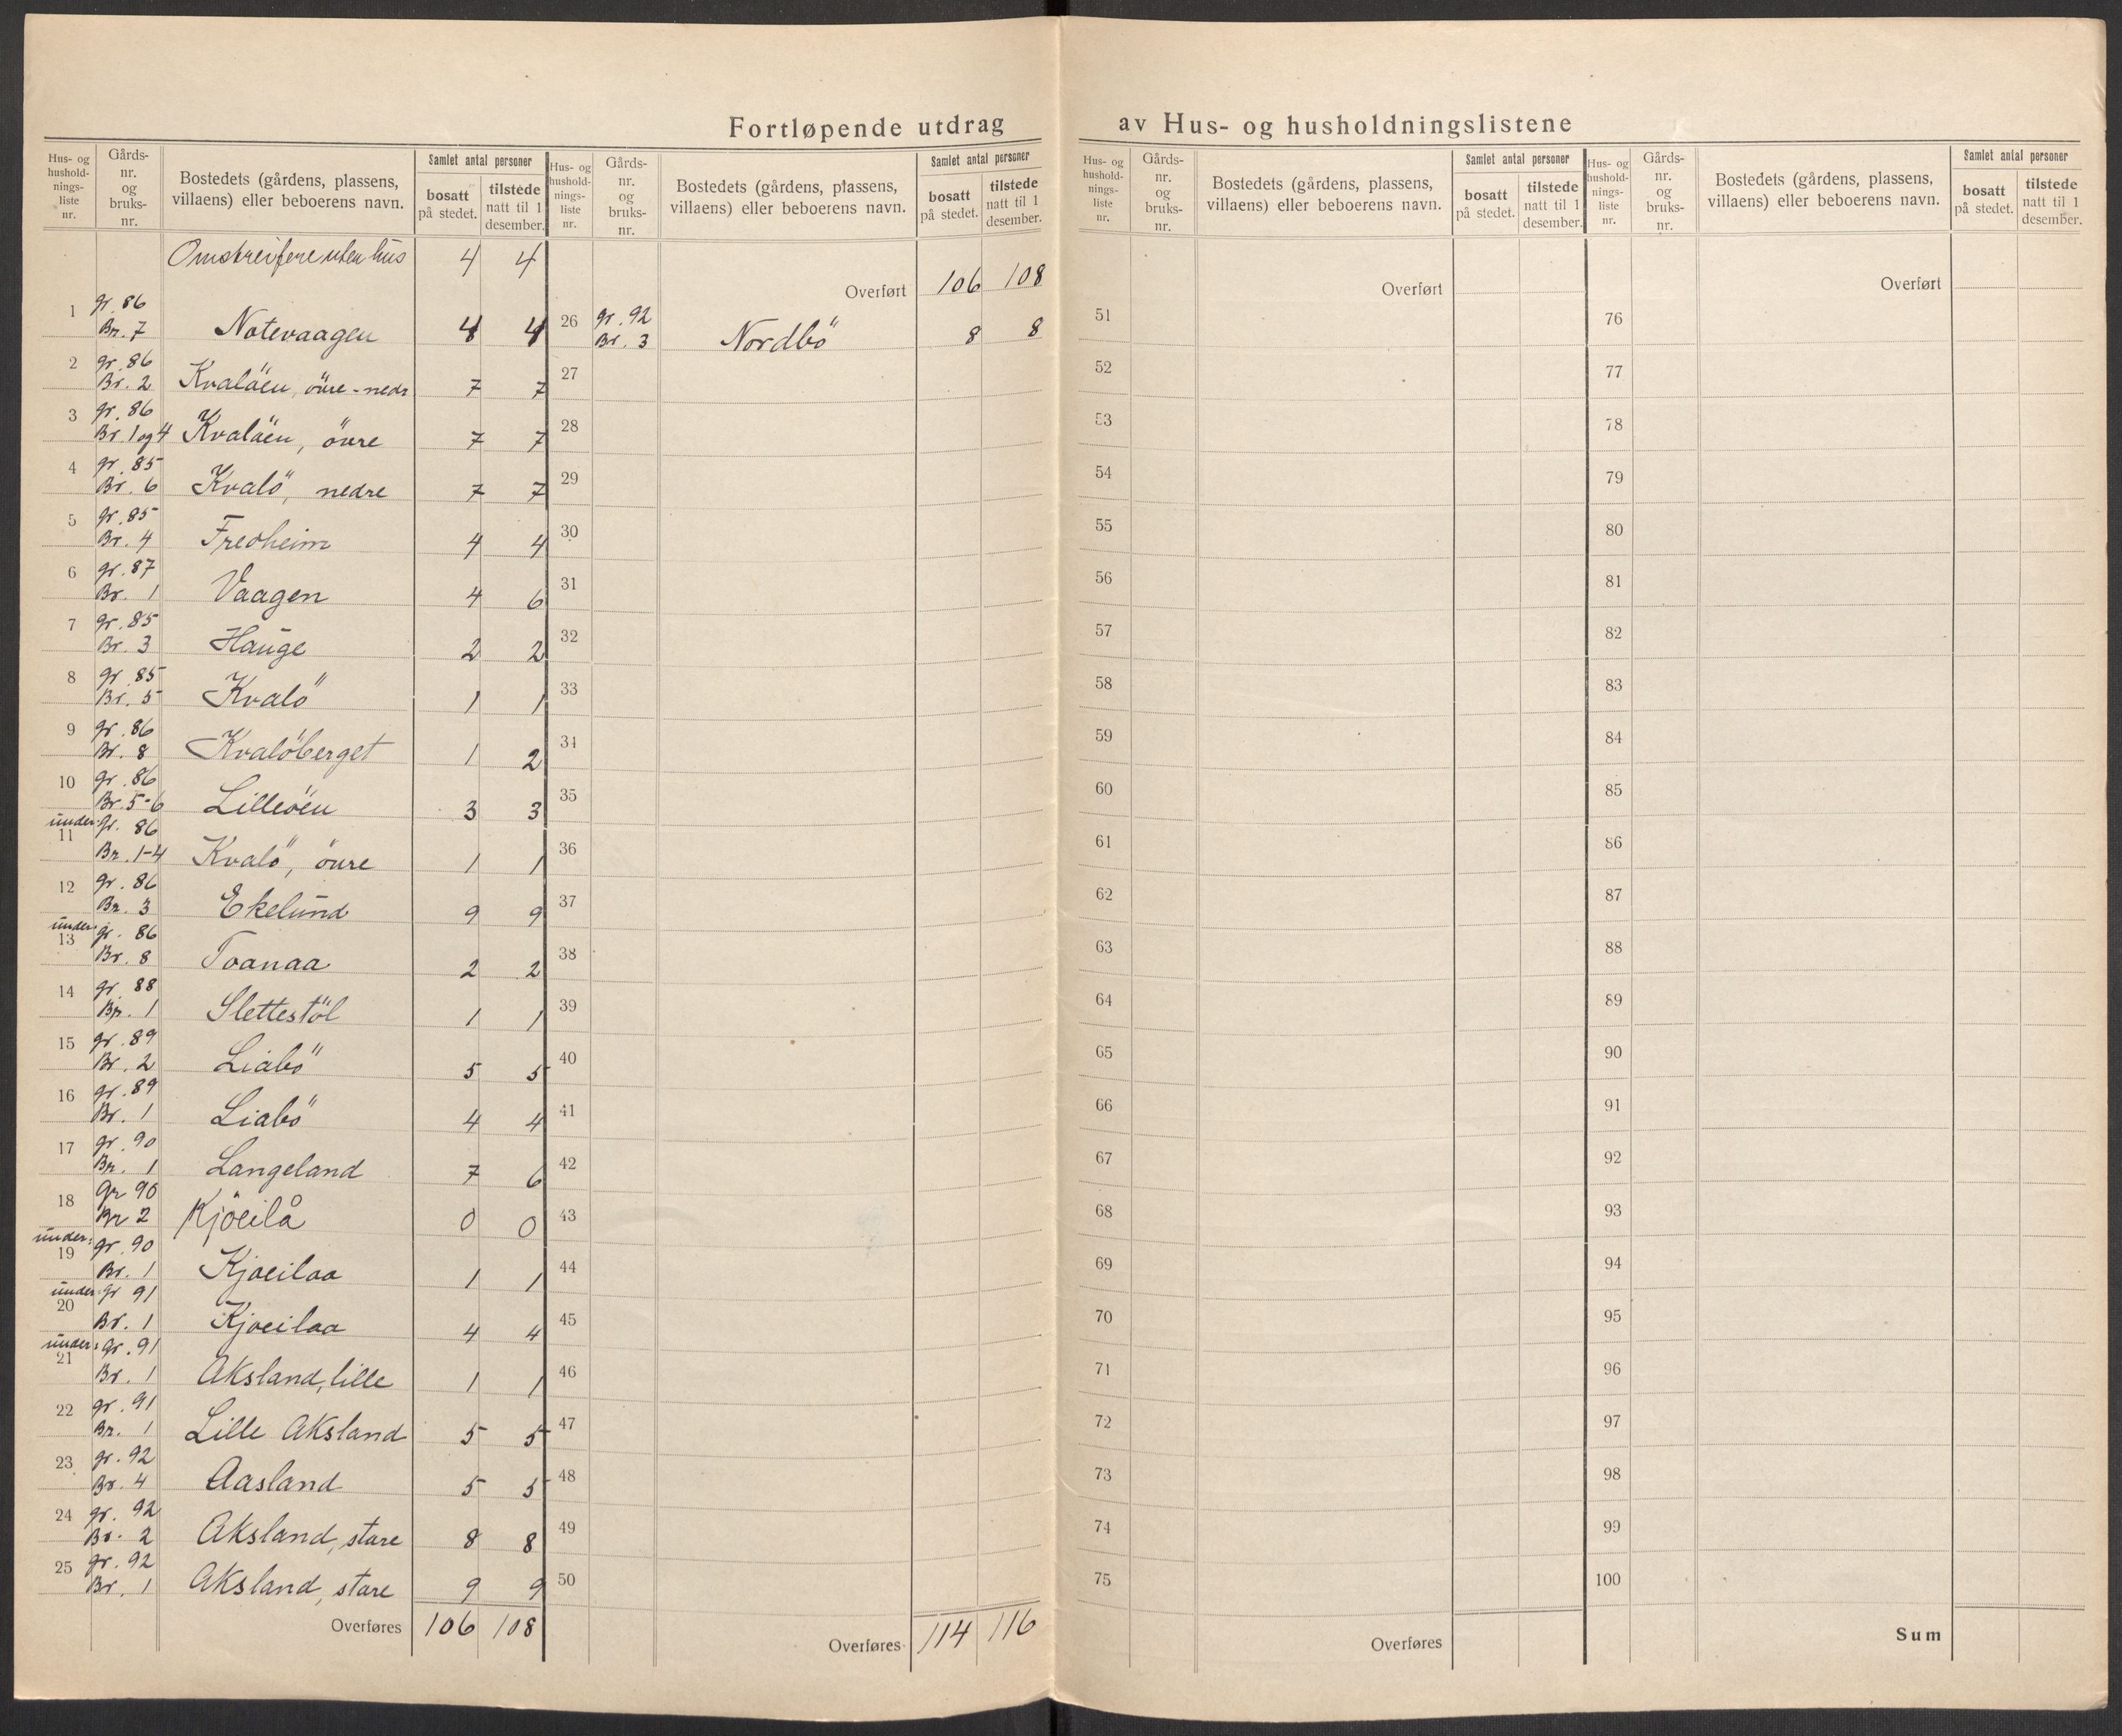 Fortløpende utdrag av Hus- og husholdningslistene
Hus- og husholdningsliste nr. | Gårds-nr. og bruks-nr. | Bostedets (gårdens, plassens, villaens) eller beboerens navn. | Samlet antal personer | bosatt på stedet. | tilstede natt til 1 desember.
Omstreifere uten hus 4 4
1 gr. 86 Br. 7 Notevaagen 4 4
2 gr. 86 Br. 2 Kvaløen, övre-nedr 7 7
3 gr. 86 Br. 1 og 4 Kvaløen, övre 7 7
4 gr. 85 Br. 6 Kvalö, nedre 7 7
5 gr. 85 Br. 4 Fredheim 4 4
6 gr. 87 Br. 1 Vaagen 4 6
7 gr. 85 Br. 3 Hauge 2 2
8 gr. 85 Br. 5 Kvalö 1 1
9 gr. 86 Br. 8 Kvalöberget 1 2
10 gr. 86 Br. 5-6 Lilleöen 3 3
11 under gr. 86 Br. 1-4 Kvalö, övre 1 1
12 gr. 86 Br. 3 Ekelund 9 9
13 under gr. 86 Br. 8 Toanaa 2 2
14 gr. 88 Br. 1 Slettestöl 1 1
15 gr. 89 Br. 2 Liabö 5 5
16 gr. 89 Br. 1 Liabö 4 4
17 gr. 90 Br. 1 Langeland 7 6
18 Gr 90 Br 2 Kjöeilå 0 0
19 under: gr. 90 Br. 1 Kjoeilaa 1 1
20 under gr 91 Br. 1 Kjoeilaa 4 4
21 under: gr. 91 Br. 1 Aksland, lille 1 1
22 gr. 91 Br. 1 Lille Aksland 5 5
23 gr. 92 Br. 4 Aasland 5 5
24 gr. 92 Br. 2 Aksland, store 8 8
25 gr. 92 Br. 1 Aksland, store 9 9
Overføres 106 108
Hus- og husholdningsliste nr. | Gårds-nr. og bruks-nr. | Bostedets (gårdens, plassens, villaens) eller beboerens navn. | Samlet antal personer | bosatt på stedet. | tilstede natt til 1 desember.
Overført 106 108
26 gr. 92 Br. 3 Nordbö 8 8
27
28
29
30
31
32
33
34
35
36
37
38
39
40
41
42
43
44
45
46
47
48
49
50
Overføres 114 116
Hus- og husholdningsliste nr. | Gårds-nr. og bruks-nr. | Bostedets (gårdens, plassens, villaens) eller beboerens navn. | Samlet antal personer | bosatt på stedet. | tilstede natt til 1 desember.
Overført
51
52
53
54
55
56
57
58
59
60
61
62
63
64
65
66
67
68
69
70
71
72
73
74
75
Overføres
Hus- og husholdningsliste nr. | Gårds-nr. og bruks-nr. | Bostedets (gårdens, plassens, villaens) eller beboerens navn. | Samlet antal personer | bosatt på stedet. | tilstede natt til 1 desember.
Overført
76
77
78
79
80
81
82
83
84
85
86
87
88
89
90
91
92
93
94
95
96
97
98
99
100
Sum